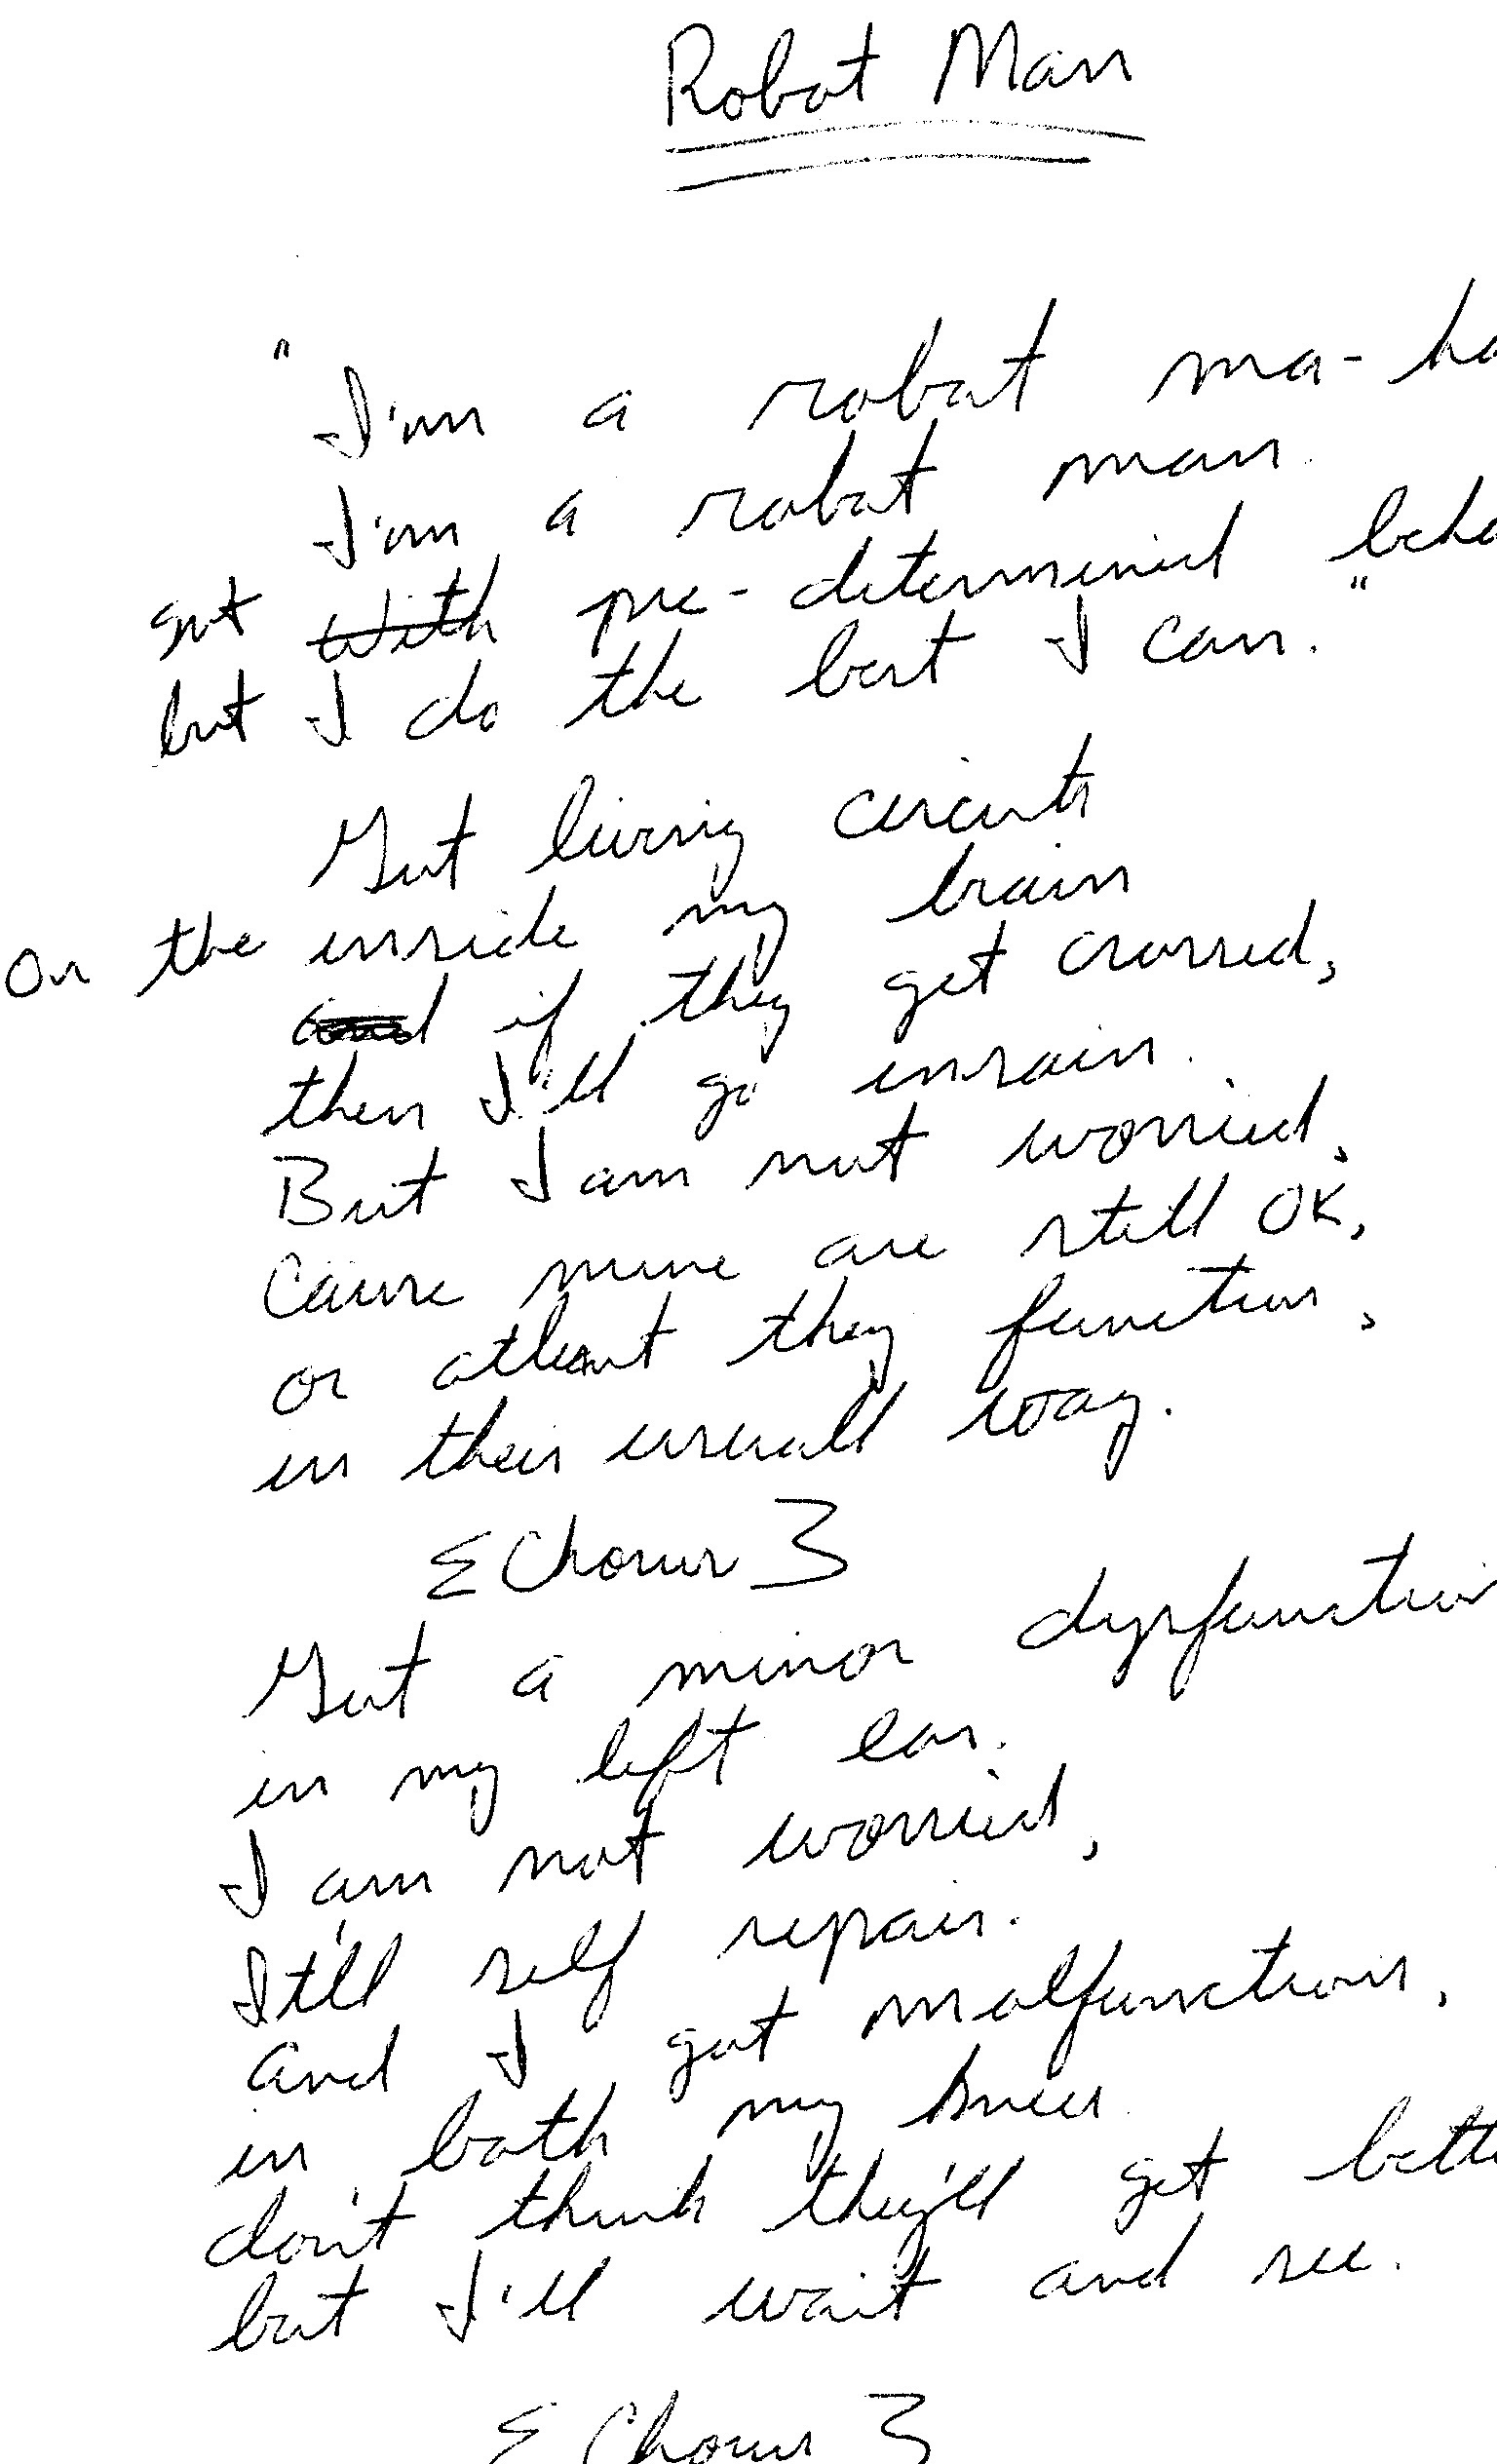 Robot Man
"I'm a robot ma-ha
I'm a robot man.
got With pre-determined beha
but I do the best I can."
Got living circuits
on the inside my brain
and if they get crossed,
then I'll go insain.
But I am not worried,
Cause mine are still OK,
or atleast they function,
in their usuall way.
{Chorus}
Got a minor dysfunction
in my left ear.
I am not worried,
It'll self repair.
And I got malfunctions,
in both my knees
don't think they'll get bette
but I'll wait and see.
{Chorus}